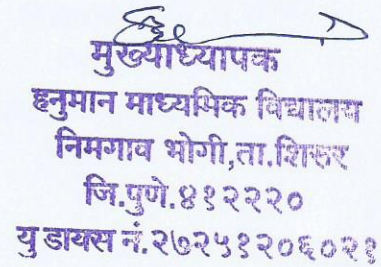 मुख्याध्यापक
हनुमान माध्यमिक विद्यालय
निमगाव भोगी,ता.शिरुर
जि.पुणे.४१२२२०
यु डायस नं.२७२५१२०६०२१